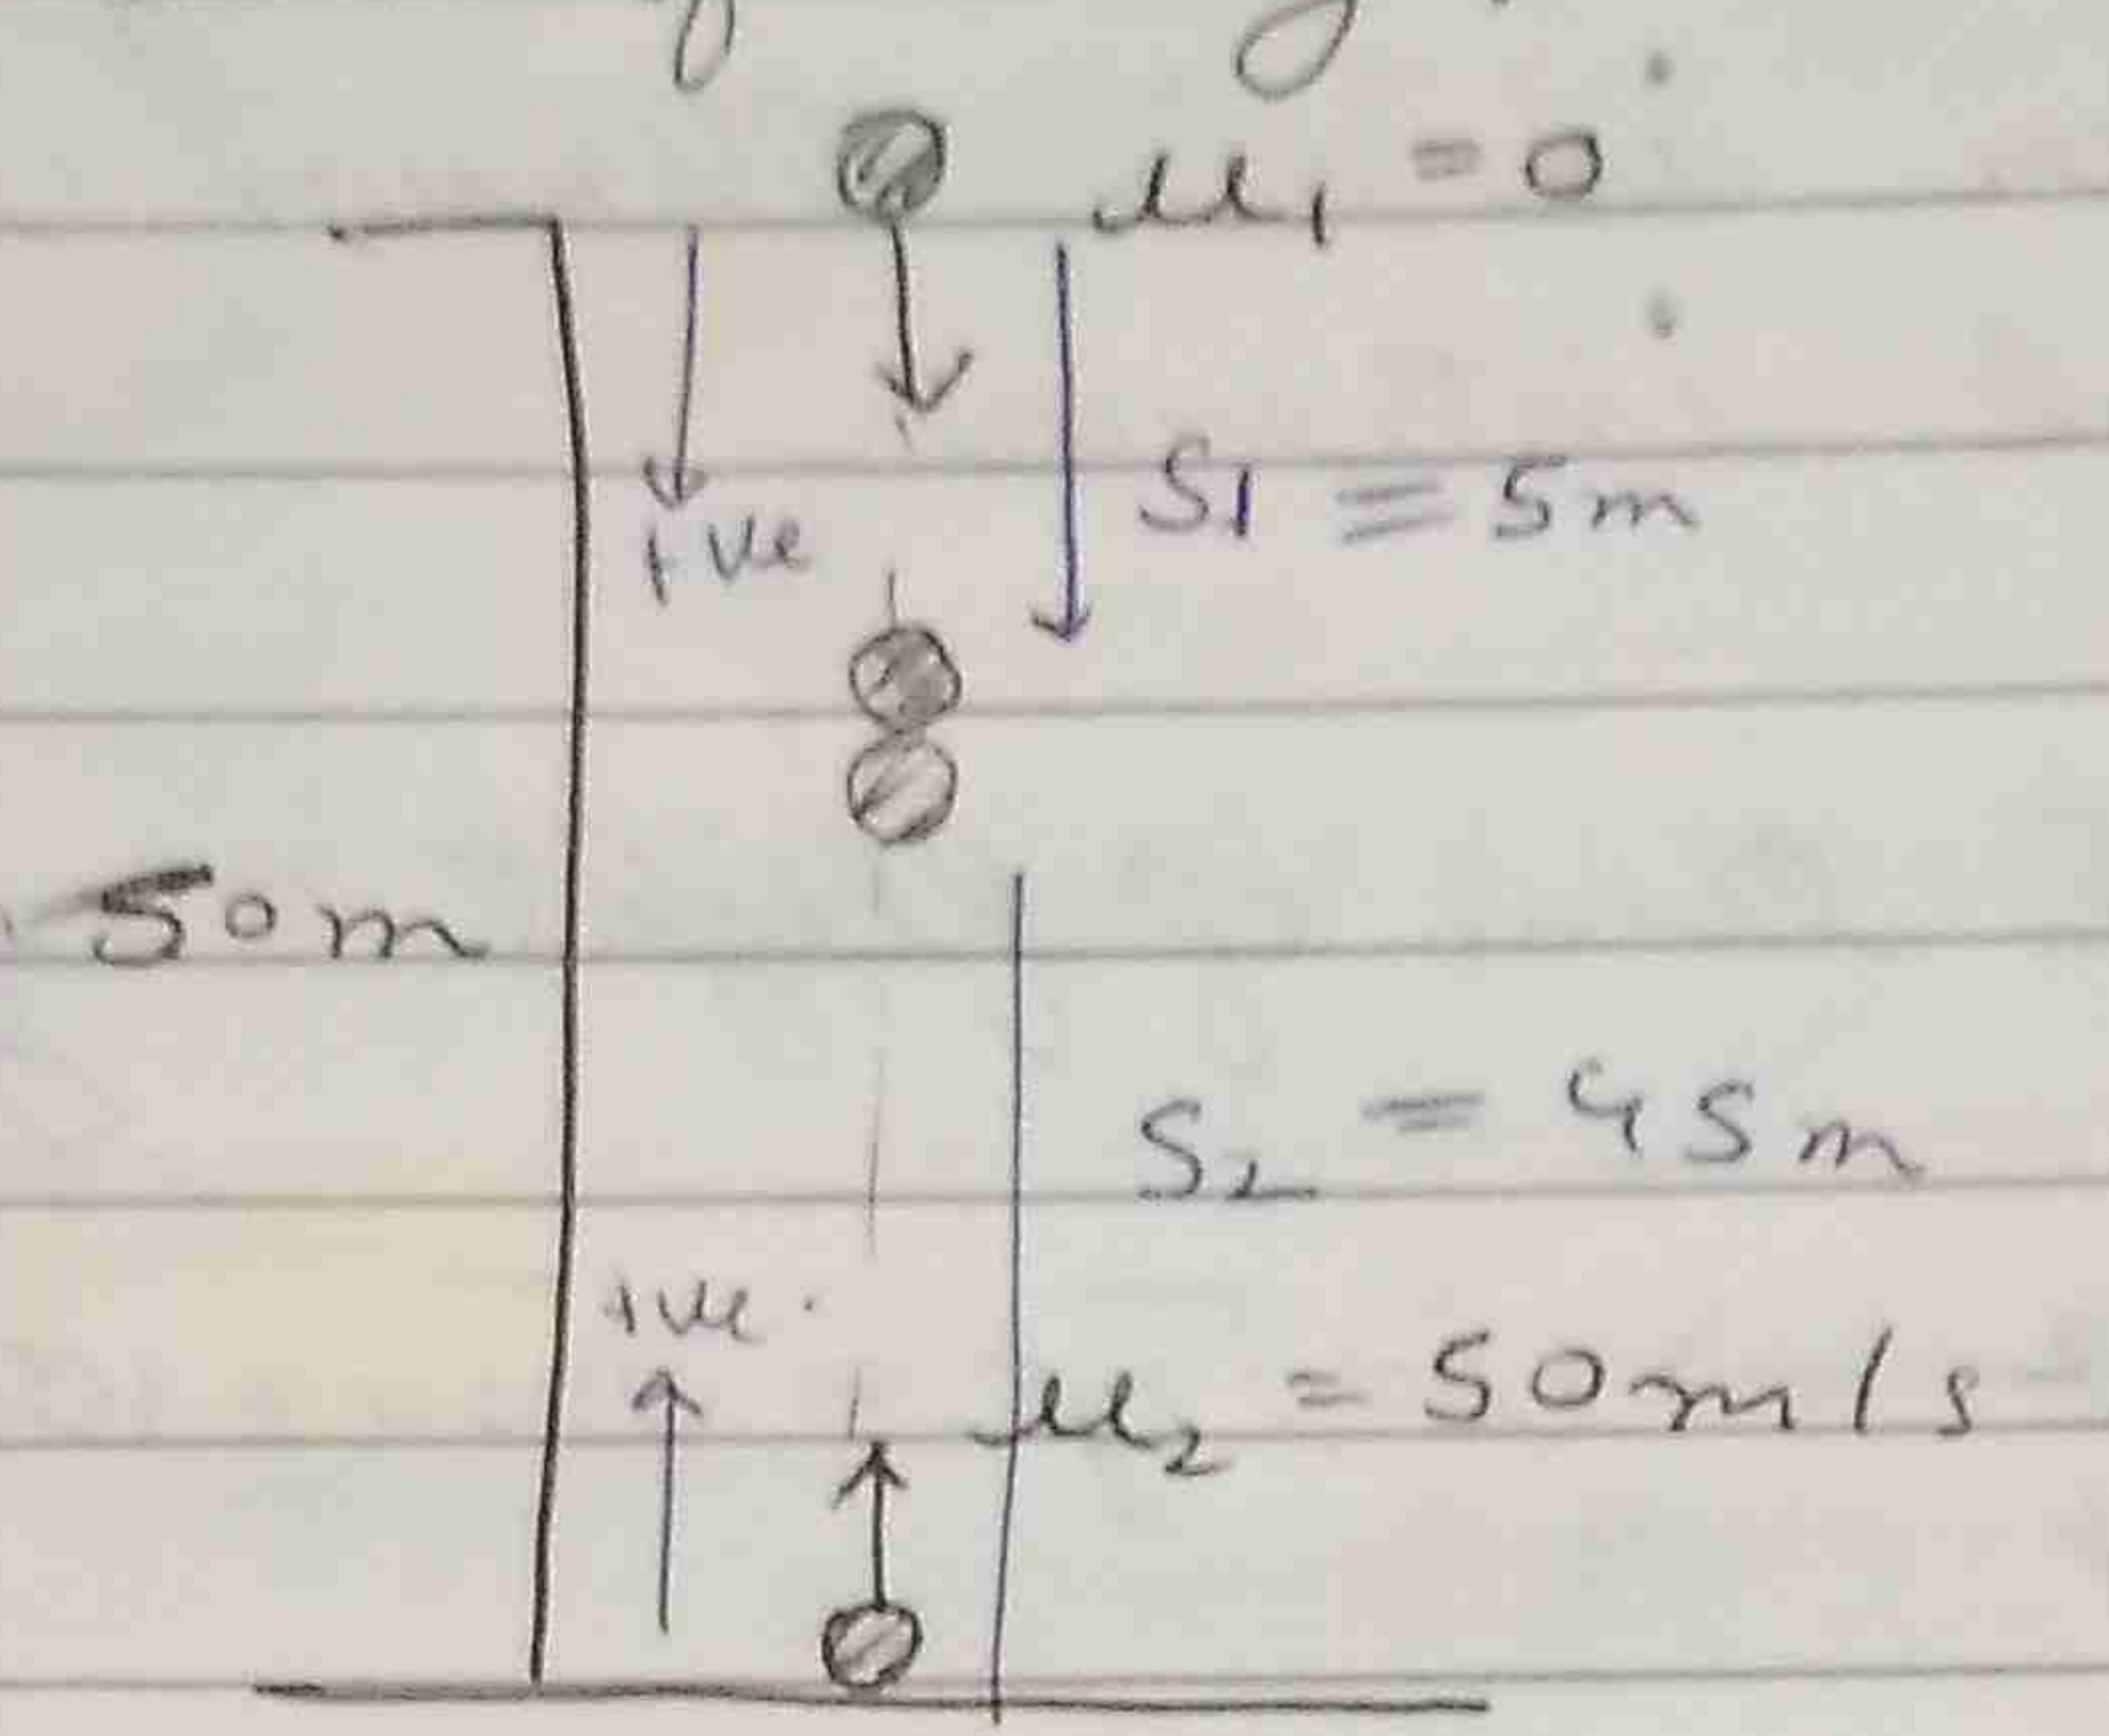 u₁ = 0
S1 = 5m
+ve
50m
S₂ = 45m
+ve
u₂ = 50m/s